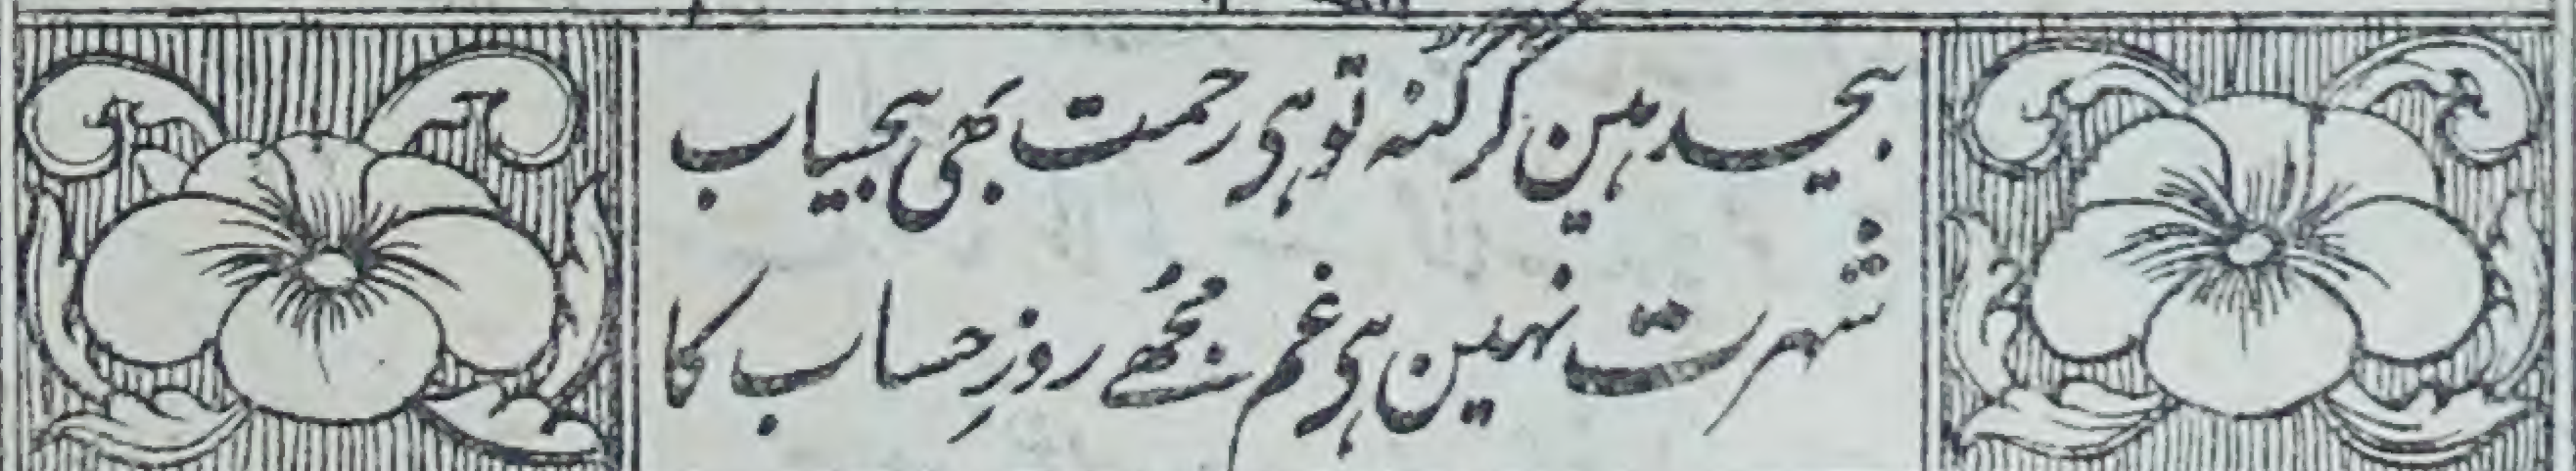 بیحد ہین گر گنہ تو ہی رحمت بھی بیحیاب
شہرت نہین ہی غم مجُھے روزِ حساب کا